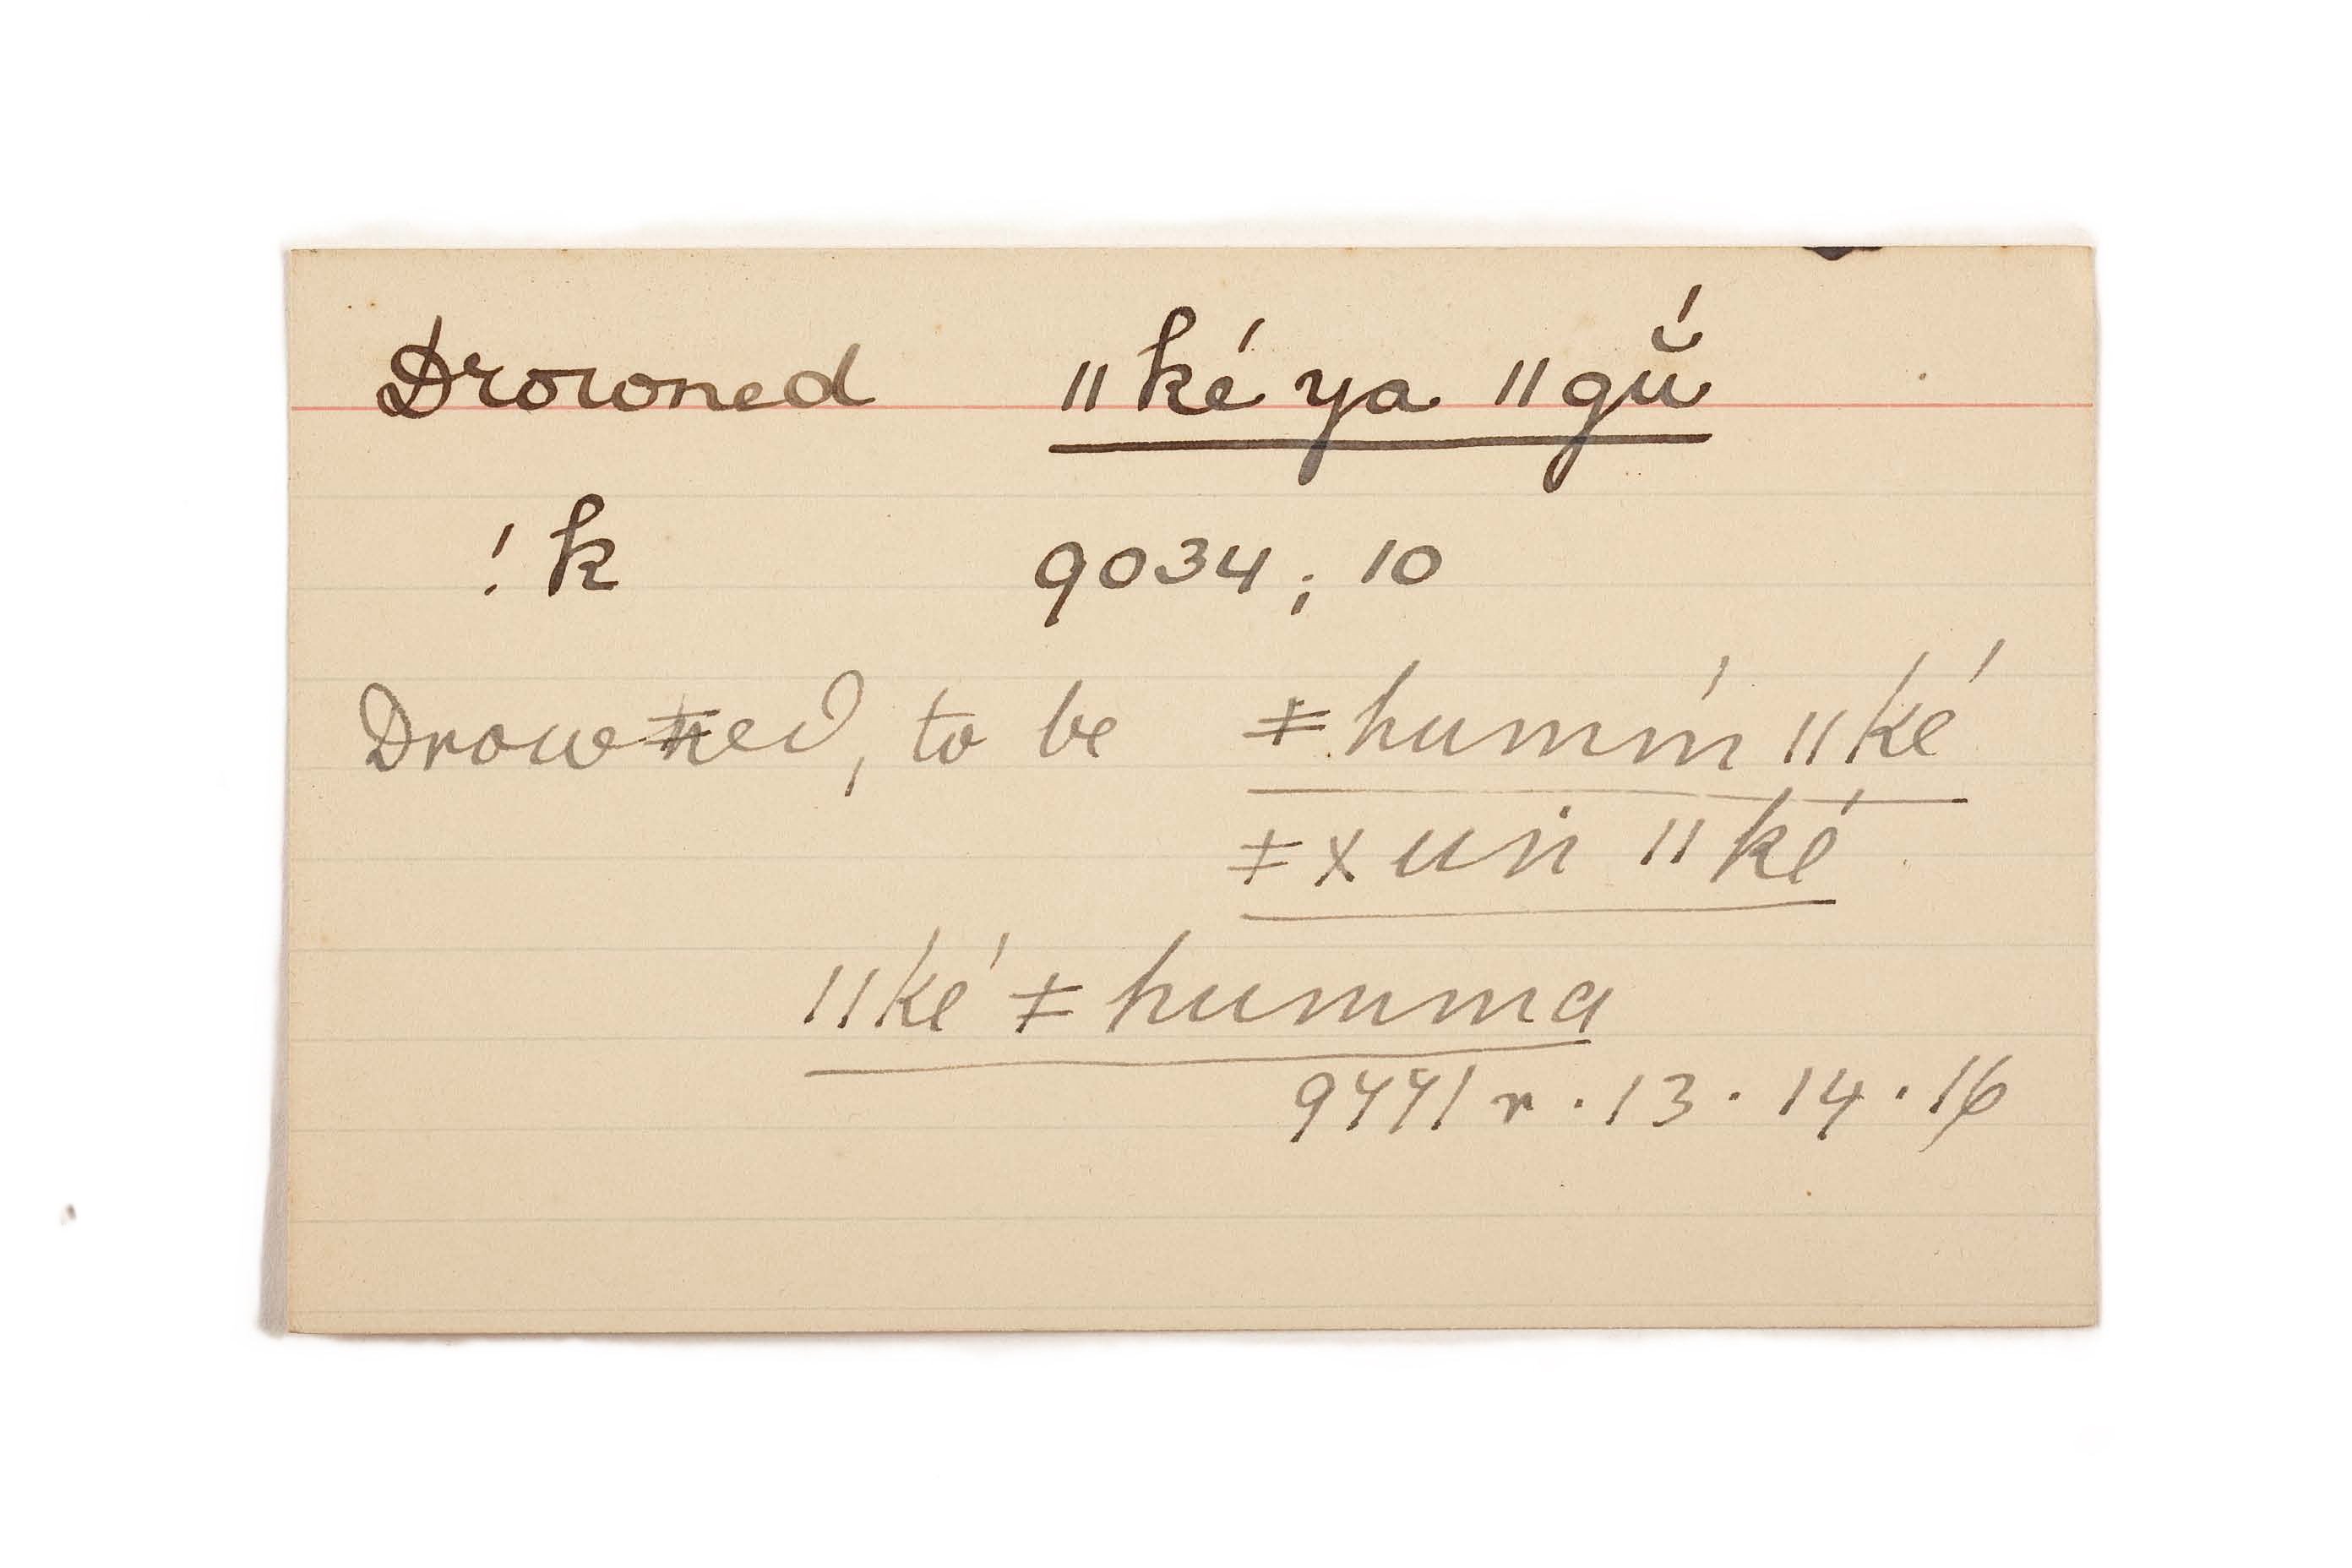 Drowned ǁké ya ǁgŭ́
!k 9034; 10
Drowned, to be ǂhumḿ ǁké
ǂxuṅ ǁké
ǁké ǂhumma
9441 r. 13. 14. 16